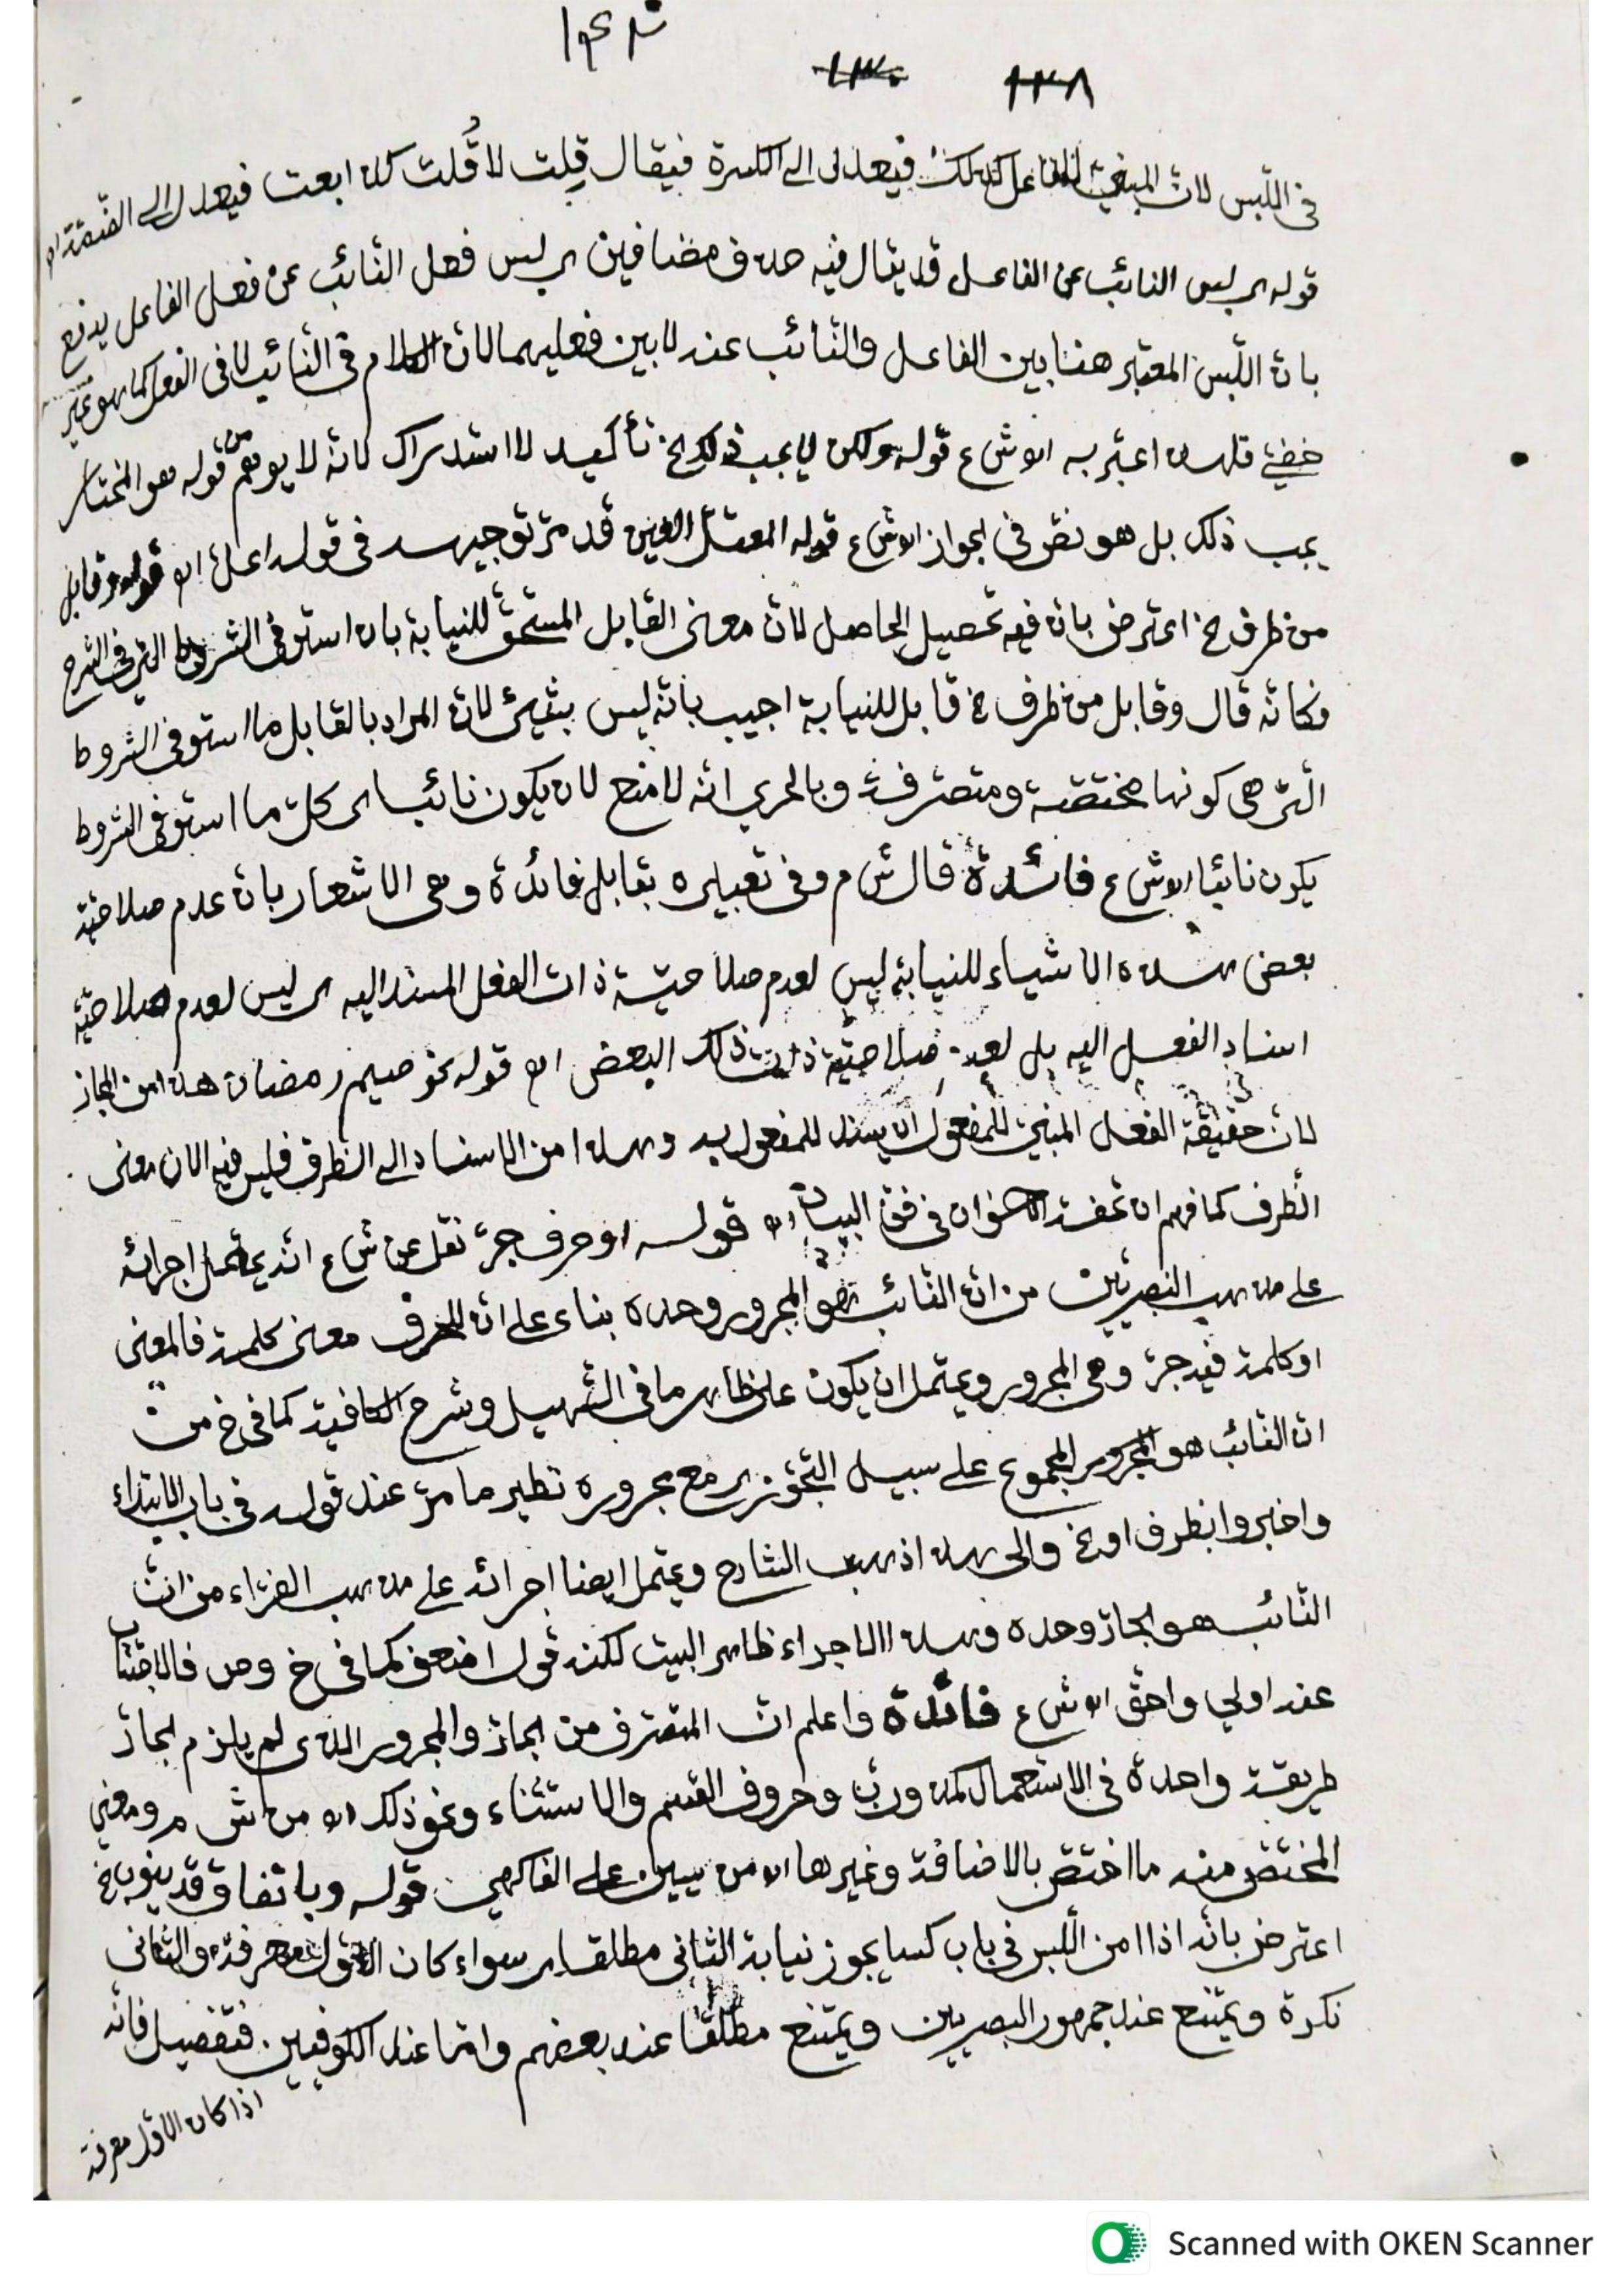 ١٣٨ ١٣٠
فى اللّبس لانّ المبنيّ للفاعل كذلك فيعدل الى الكسرة فيقال قِلت لا قُلت كذا بعت فيعدل الى الضّمّة اه
قوله اى لبس النائب عن الفاعل قد يقال فيه حذف مضافين اى لبس فعل النّائب عن فعل الفاعل يدفع
بانّ اللّبس المعتبر هنا بين الفاعل والنّائب عنه لا بين فعليهما لانّ الكلام فى النّائب لا فى الفعل كما هو غير
خفيّ فلهذا عبّر به اه ش ع قوله ولكن لا يجب ذلك الخ تأكيد لا استدراك لانّه لا يوهم من قوله هو المختار
يجب ذلك بل هو نصّ فى الجواز اه ش ع قوله المعتلّ العين قد مرّ توجيهه فى قوله اعلّ اه قوله وقابل
من ظرف الخ اعترض بانّ فيه تحصيل الحاصل لانّ معنى القابل المستحقّ للنيابة بان استوفى الشروط التى فى الشرح
فكانّه قال وقابل من ظرف الخ قابل للنيابة اجيب بانّه ليس بشيئ لانّ المراد بالقابل ما استوفى الشروط
الّتى هى كونها مختصّة ومتصرّفة وبالحري انّه لا منع لان يكون نائبا اى كلّ ما استوفى الشروط
يكون نائبا اه ش ع فائدة قال ش م وفى تعبيره بقابل فائدة وهى الاشعار بانّ عدم صلاحيّة
بعض هذه الاشياء للنيابة ليس لعدم صلاحيّة ذات الفعل المسند اليه اى ليس لعدم صلاحيّة
اسناد الفعل اليه بل لعدم صلاحيّة ذات ذلك البعض اه قوله نحو صيم رمضان هذا من المجاز
لانّ حقيقة الفعل المبنيّ للمفعول ان يسند للمفعول به وهذا من الاسناد الى الظرف فليس فيه الان معنى
الظرف كما فهم ان تحفة الاخوان فى فنّ البيان اه قوله او حرف جرّ نقل عن ش ع انّه يحتمل اجرائه
على مذهب البصريّين من انّ النّائب هو المجرور وحده بناء على انّ للحرف معنى كلمة فالمعنى
او كلمة قيد جرّ وهى المجرور ويحتمل ان يكون على ظاهر ما فى التّسهيل وشرح الكافية كما فى خ من
انّ النائب هو المجموع على سبيل التّجوّز اى مع مجروره نظير ما مرّ عند قوله فى باب الابتداء
واخبروا بظرف او الخ والى هذا ذهب الشارح ويحتمل ايضا اجرائه على مذهب الفرّاء من انّ
النّائب هو الجارّ وحده وهذا الاجراء ظاهر البيت لكنه قول اضعف كما فى خ وص فالاجتناب
عنه اولى واحقّ اه ش ع فائدة واعلم انّ المتصرّف من الجارّ والمجرور الذى لم يلزم الجارّ
طريقة واحدة فى الاستعمال كمذ وربّ وحروف القسم والاستثناء ونحو ذلك اه من ش م ومعنى
المختصّ منه ما اختصّ بالاضافة وغيرها اه من يسين على الفاكهى قوله وباتفاق قد ينوب الخ
اعترض بانّه اذا امن اللّبس فى باب كسا يجوز نيابة الثانى مطلقا اى سواء كان الاوّل معرفة والثانى
نكرة ويمتنع عند جمهور البصريين ويمتنع مطلقا عند بعضهم وامّا عند الكوفيين فتفصيل فانّه
اذا كان الاوّل معرفة
Scanned with OKEN Scanner